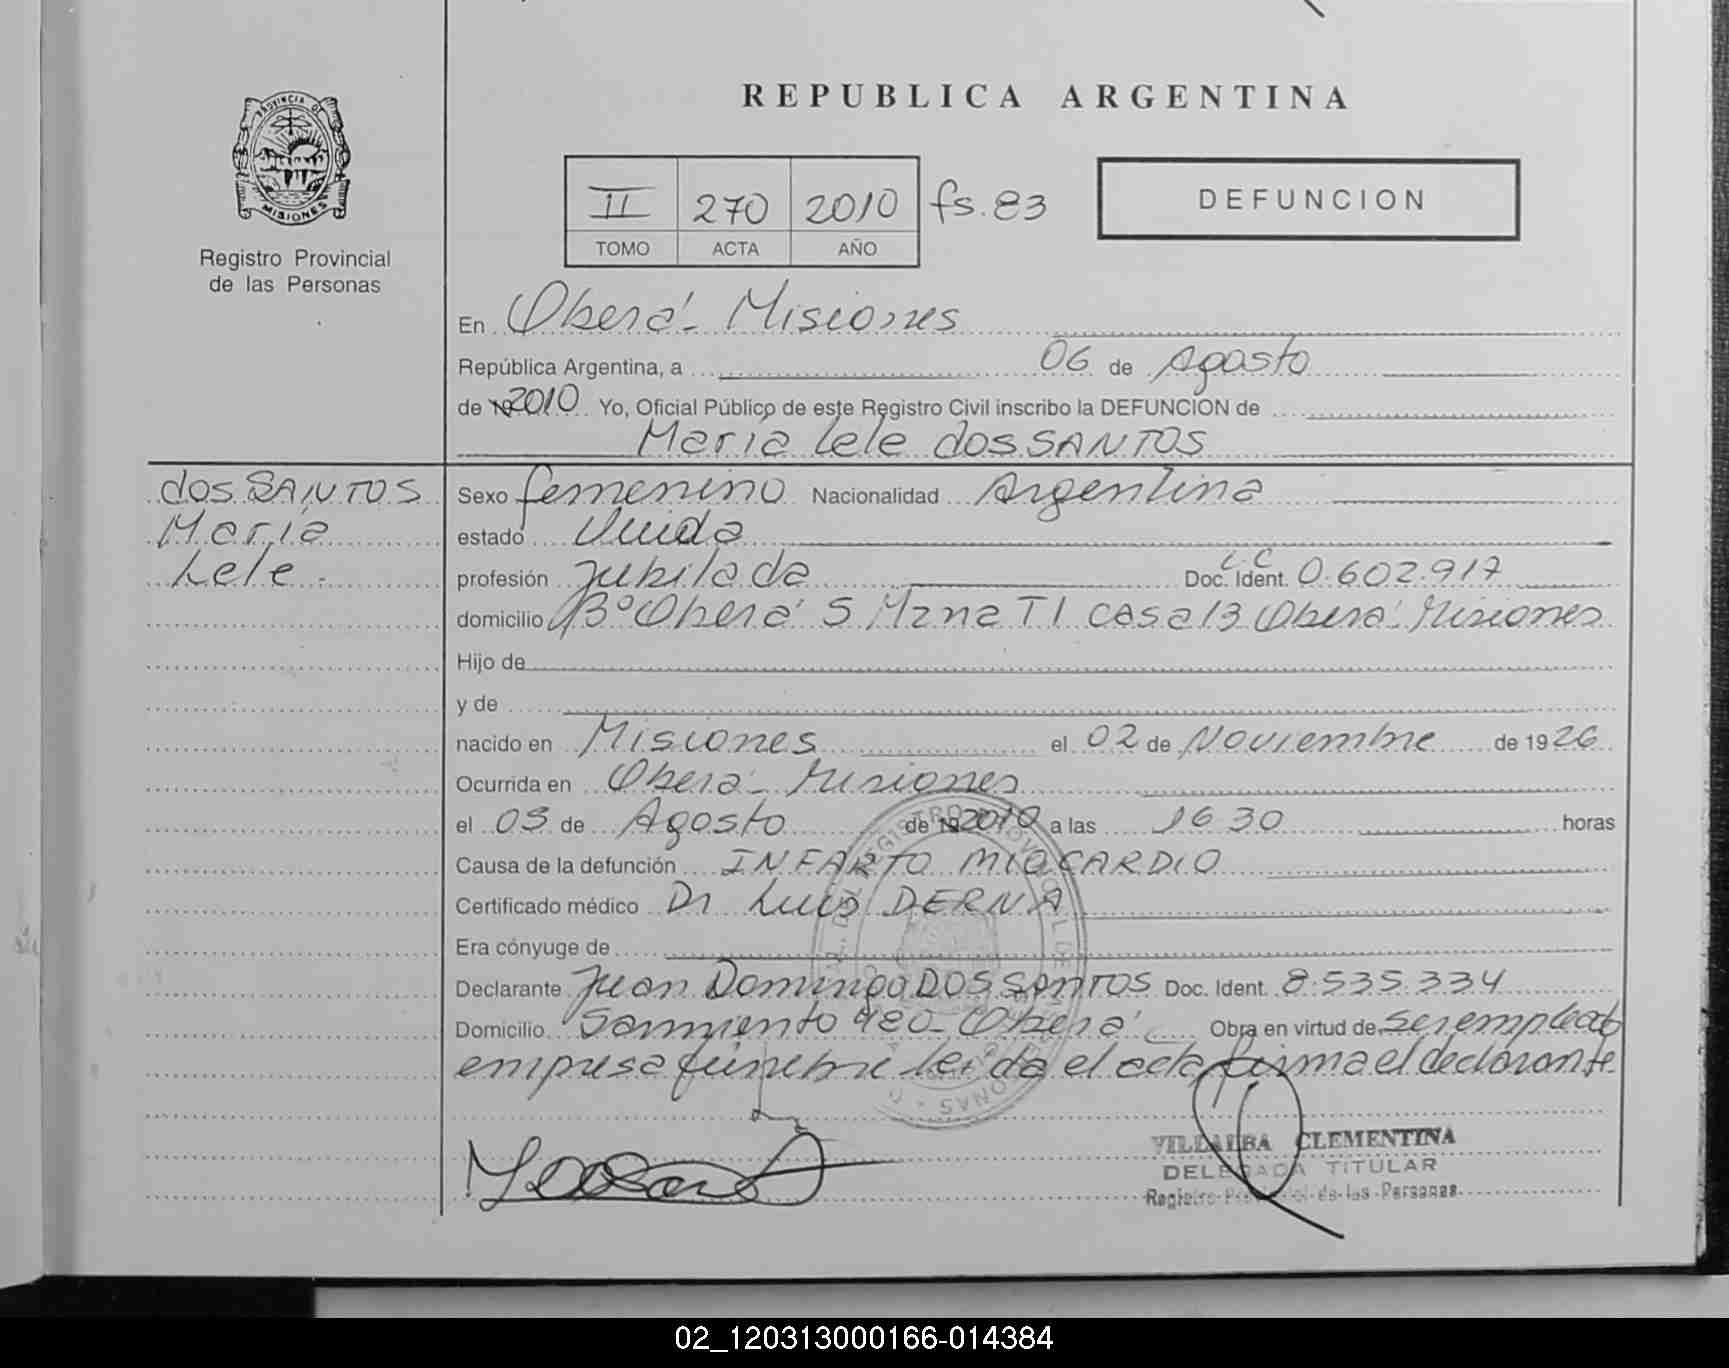 PROVINCIA DE
MISIONES
Registro Provincial
de las Personas
REPUBLICA ARGENTINA
II 270 2010 fs. 83
TOMO ACTA AÑO
DEFUNCION
En Oberá - Misiones
República Argentina, a 06 de Agosto
de 2010 Yo, Oficial Público de este Registro Civil inscribo la DEFUNCION de
María Lele dos SANTOS
dos SANTOS
María
Lele.
Sexo femenino Nacionalidad Argentina
estado Viuda
profesión jubilada Doc. Ident. LC 0.602.917
domicilio Bº Oberá 5 Mzna T1 casa 13 Oberá - Misiones
Hijo de
y de
nacido en Misiones el 02 de Noviembre de 1926
Ocurrida en Oberá - Misiones
el 03 de Agosto de 2010 a las 16 30 horas
Causa de la defunción INFARTO MIOCARDIO
Certificado médico Dr Luis DERNA
Era cónyuge de
Declarante Juan Domingo DOS SANTOS Doc. Ident. 8.535.334
Domicilio Sarmiento 920 - Oberá Obra en virtud de ser empleado
empresa fúnebre leída el acta firma el declarante
VILLALBA CLEMENTINA
DELEGADA TITULAR
Registro Provincial de las Personas
02_120313000166-014384